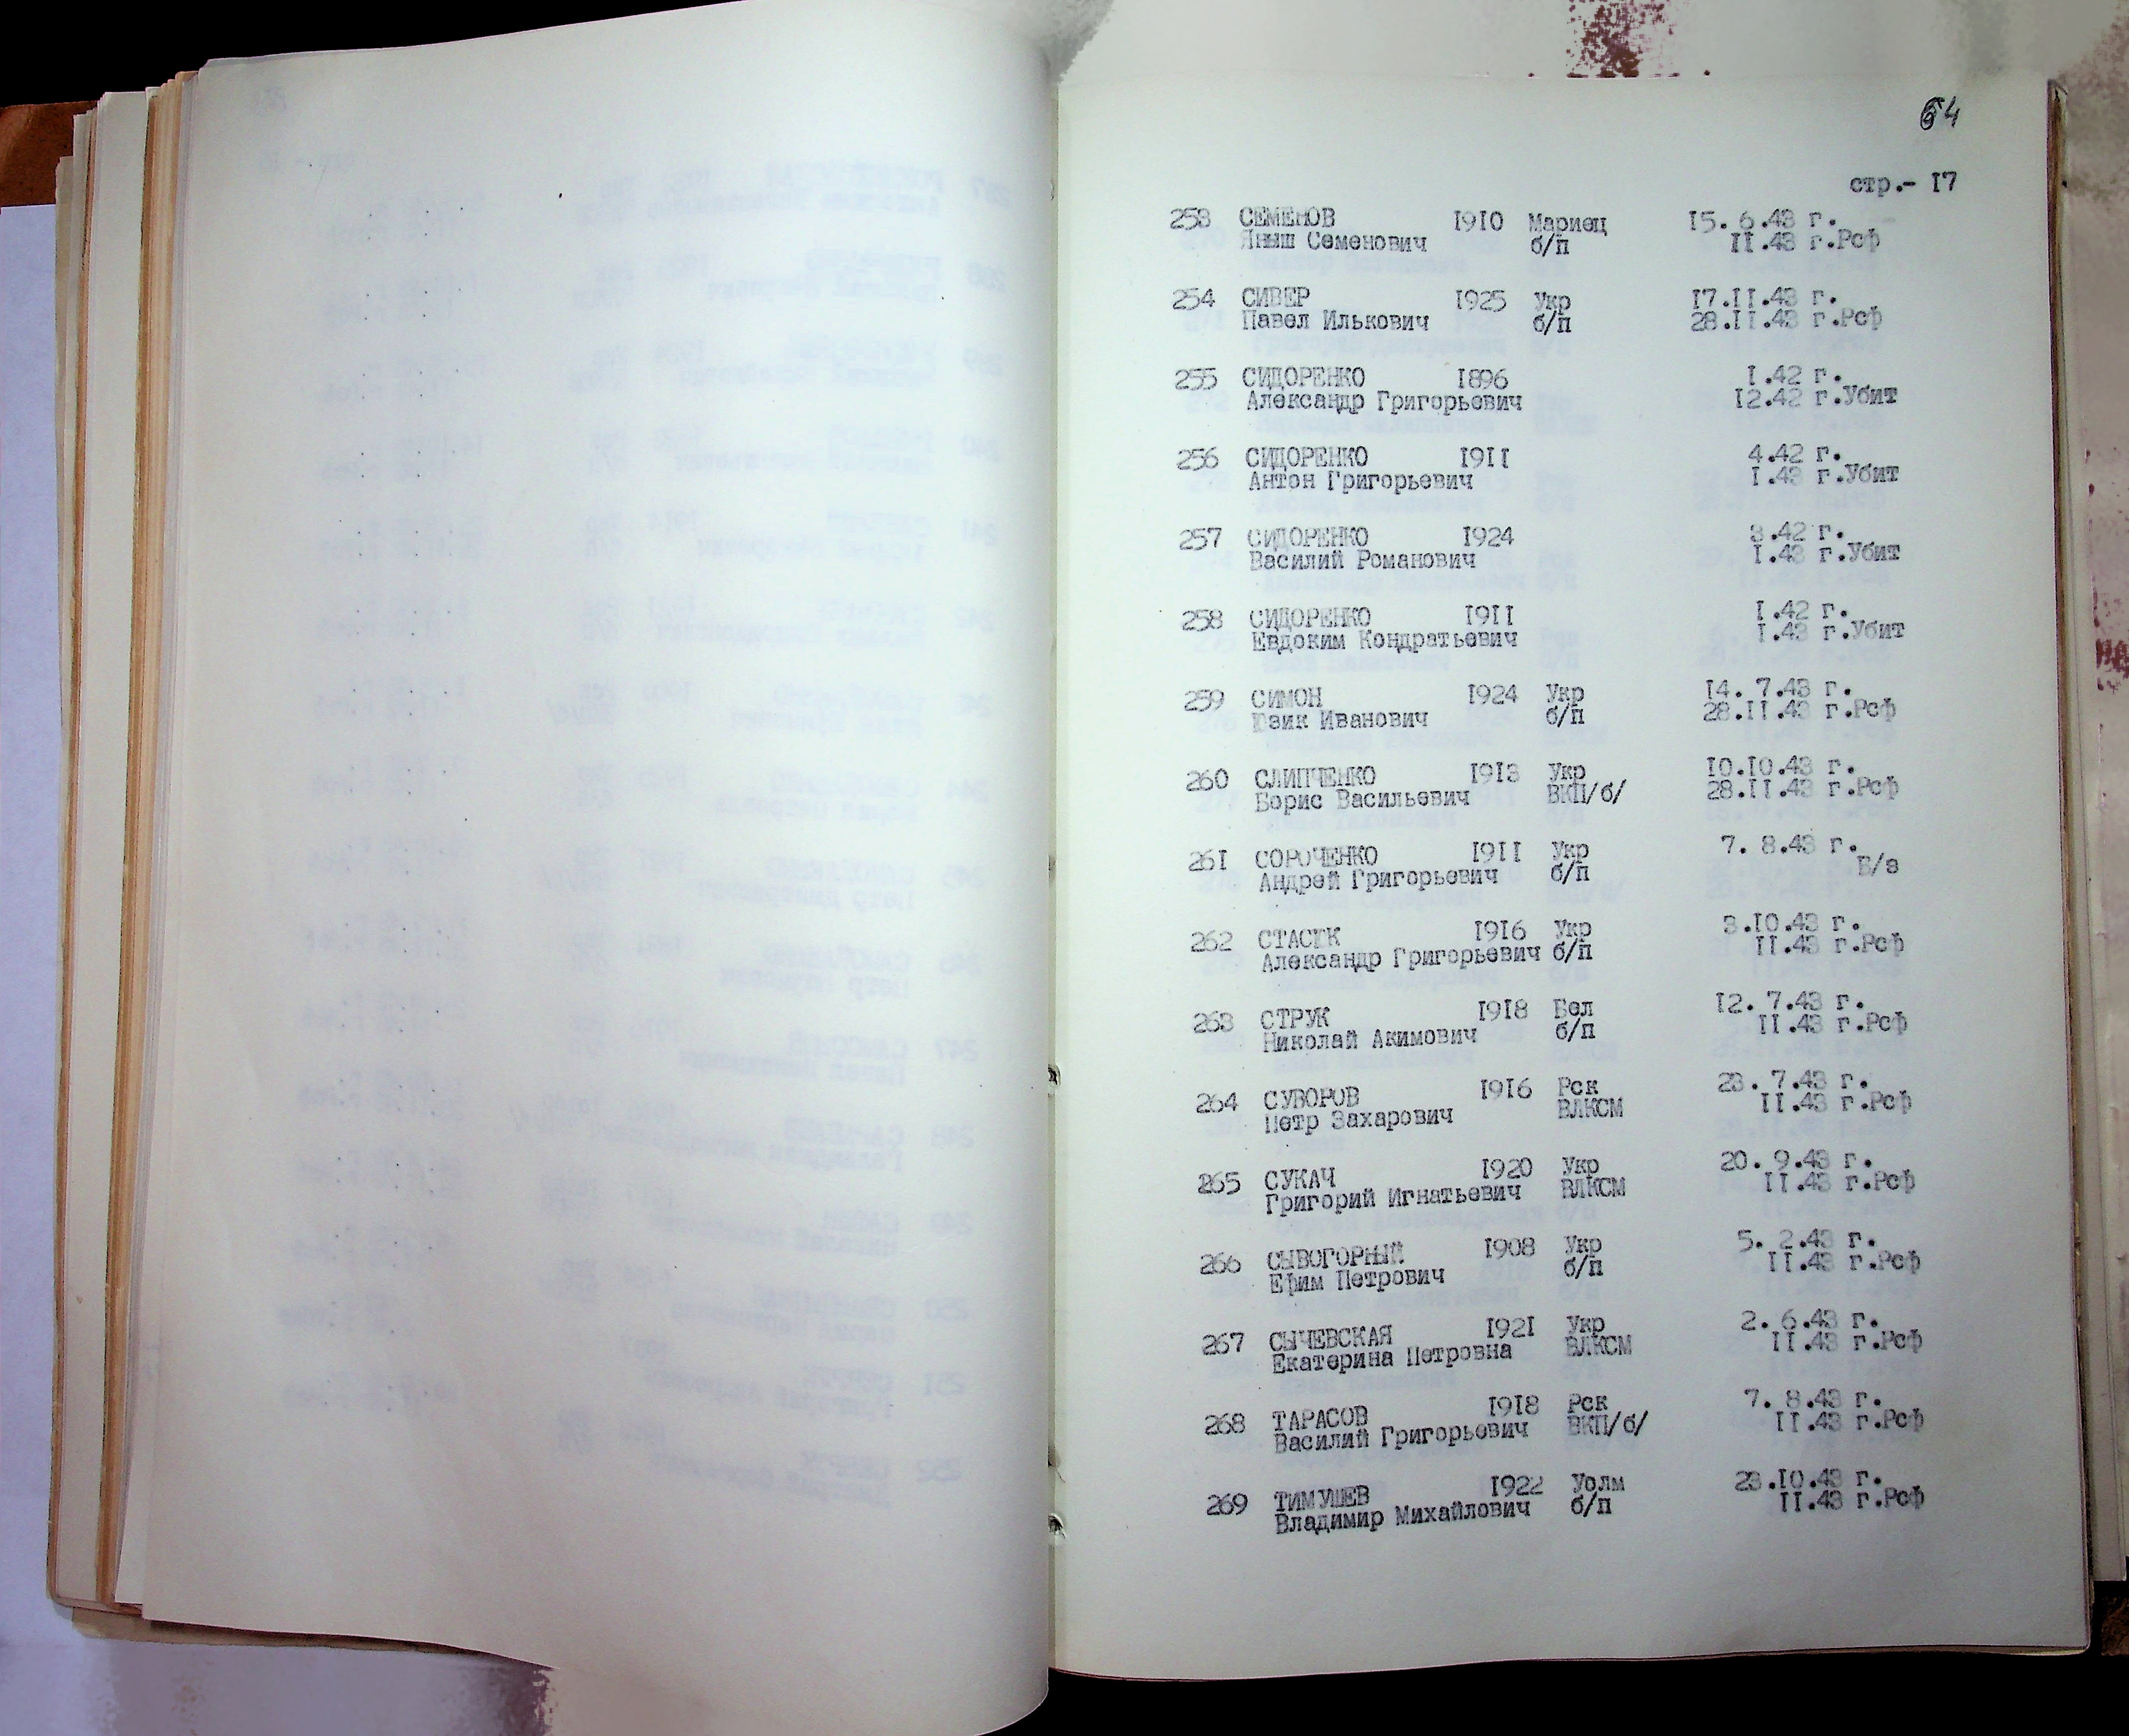 64
стр.- I7
253 СЕМЕНОВ I9I0 Мариец I5. 6.43 г.
Яныш Семенович б/п II.43 г.Рсф
254 СИВЕР I925 Укр I7.II.43 г.
Павел Илькович б/п 28.II.43 г.Рсф
255 СИДОРЕНКО I896 I.42 г.
Александр Григорьевич I2.42 г.Убит
256 СИДОРЕНКО I9II 4.42 г.
Антон Григорьевич I.43 г.Убит
257 СИДОРЕНКО I924 3.42 г.
Василий Романович I.43 г.Убит
258 СИДОРЕНКО I9II I.42 г.
Евдоким Кондратьевич I.43 г.Убит
259 СИМОН I924 Укр I4. 7.43 г.
Юзик Иванович б/п 28.II.43 г.Рсф
260 СЛИПЧЕНКО I913 Укр I0.I0.43 г.
Борис Васильевич ВКП/б/ 28.II.43 г.Рсф
26I СОРОЧЕНКО I9II Укр 7. 8.43 г.
Андрей Григорьевич б/п Б/з
262 СТАСЮК I9I6 Укр 3.I0.43 г.
Александр Григорьевич б/п II.43 г.Рсф
263 СТРУК I9I8 Бел I2. 7.43 г.
Николай Акимович б/п II.43 г.Рсф
264 СУВОРОВ I9I6 Рск 23. 7.43 г.
Петр Захарович ВЛКСМ II.43 г.Рсф
265 СУКАЧ I920 Укр 20. 9.43 г.
Григорий Игнатьевич ВЛКСМ II.43 г.Рсф
266 СЫВОГОРНЫЙ I908 Укр 5. 2.43 г.
Ефим Петрович б/п II.43 г.Рсф
267 СЫЧЕВСКАЯ I92I Укр 2. 6.43 г.
Екатерина Петровна ВЛКСМ II.43 г.Рсф
268 ТАРАСОВ I9I8 Рск 7. 8.43 г.
Василий Григорьевич ВКП/б/ II.43 г.Рсф
269 ТИМУШЕВ I922 Уолм 23.I0.43 г.
Владимир Михайлович б/п II.43 г.Рсф